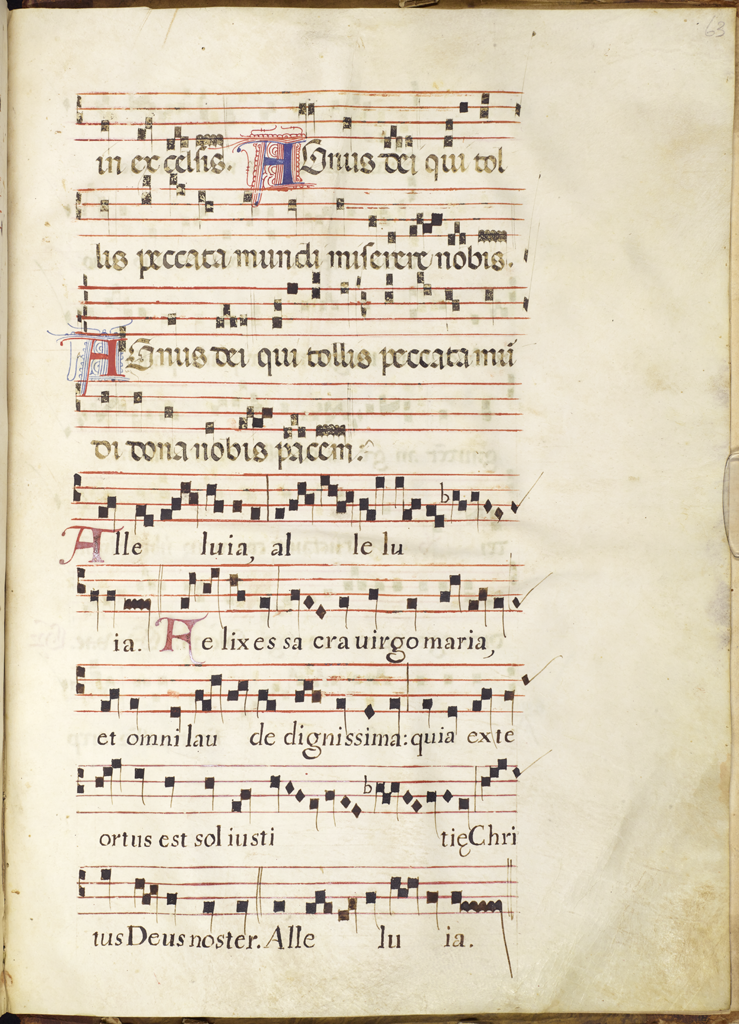 63
in excelsis. AGnus dei qui tol
lis peccata mundi miserere nobis.
AGnus dei qui tollis peccata mū
di dona nobis pacem.
Alle luia, al le lu
ia. Felix es sacra uirgo maria,
et omni lau de dignissima: quia exte
ortus est sol iusti tięChri
tus Deus noster. Alle lu ia.